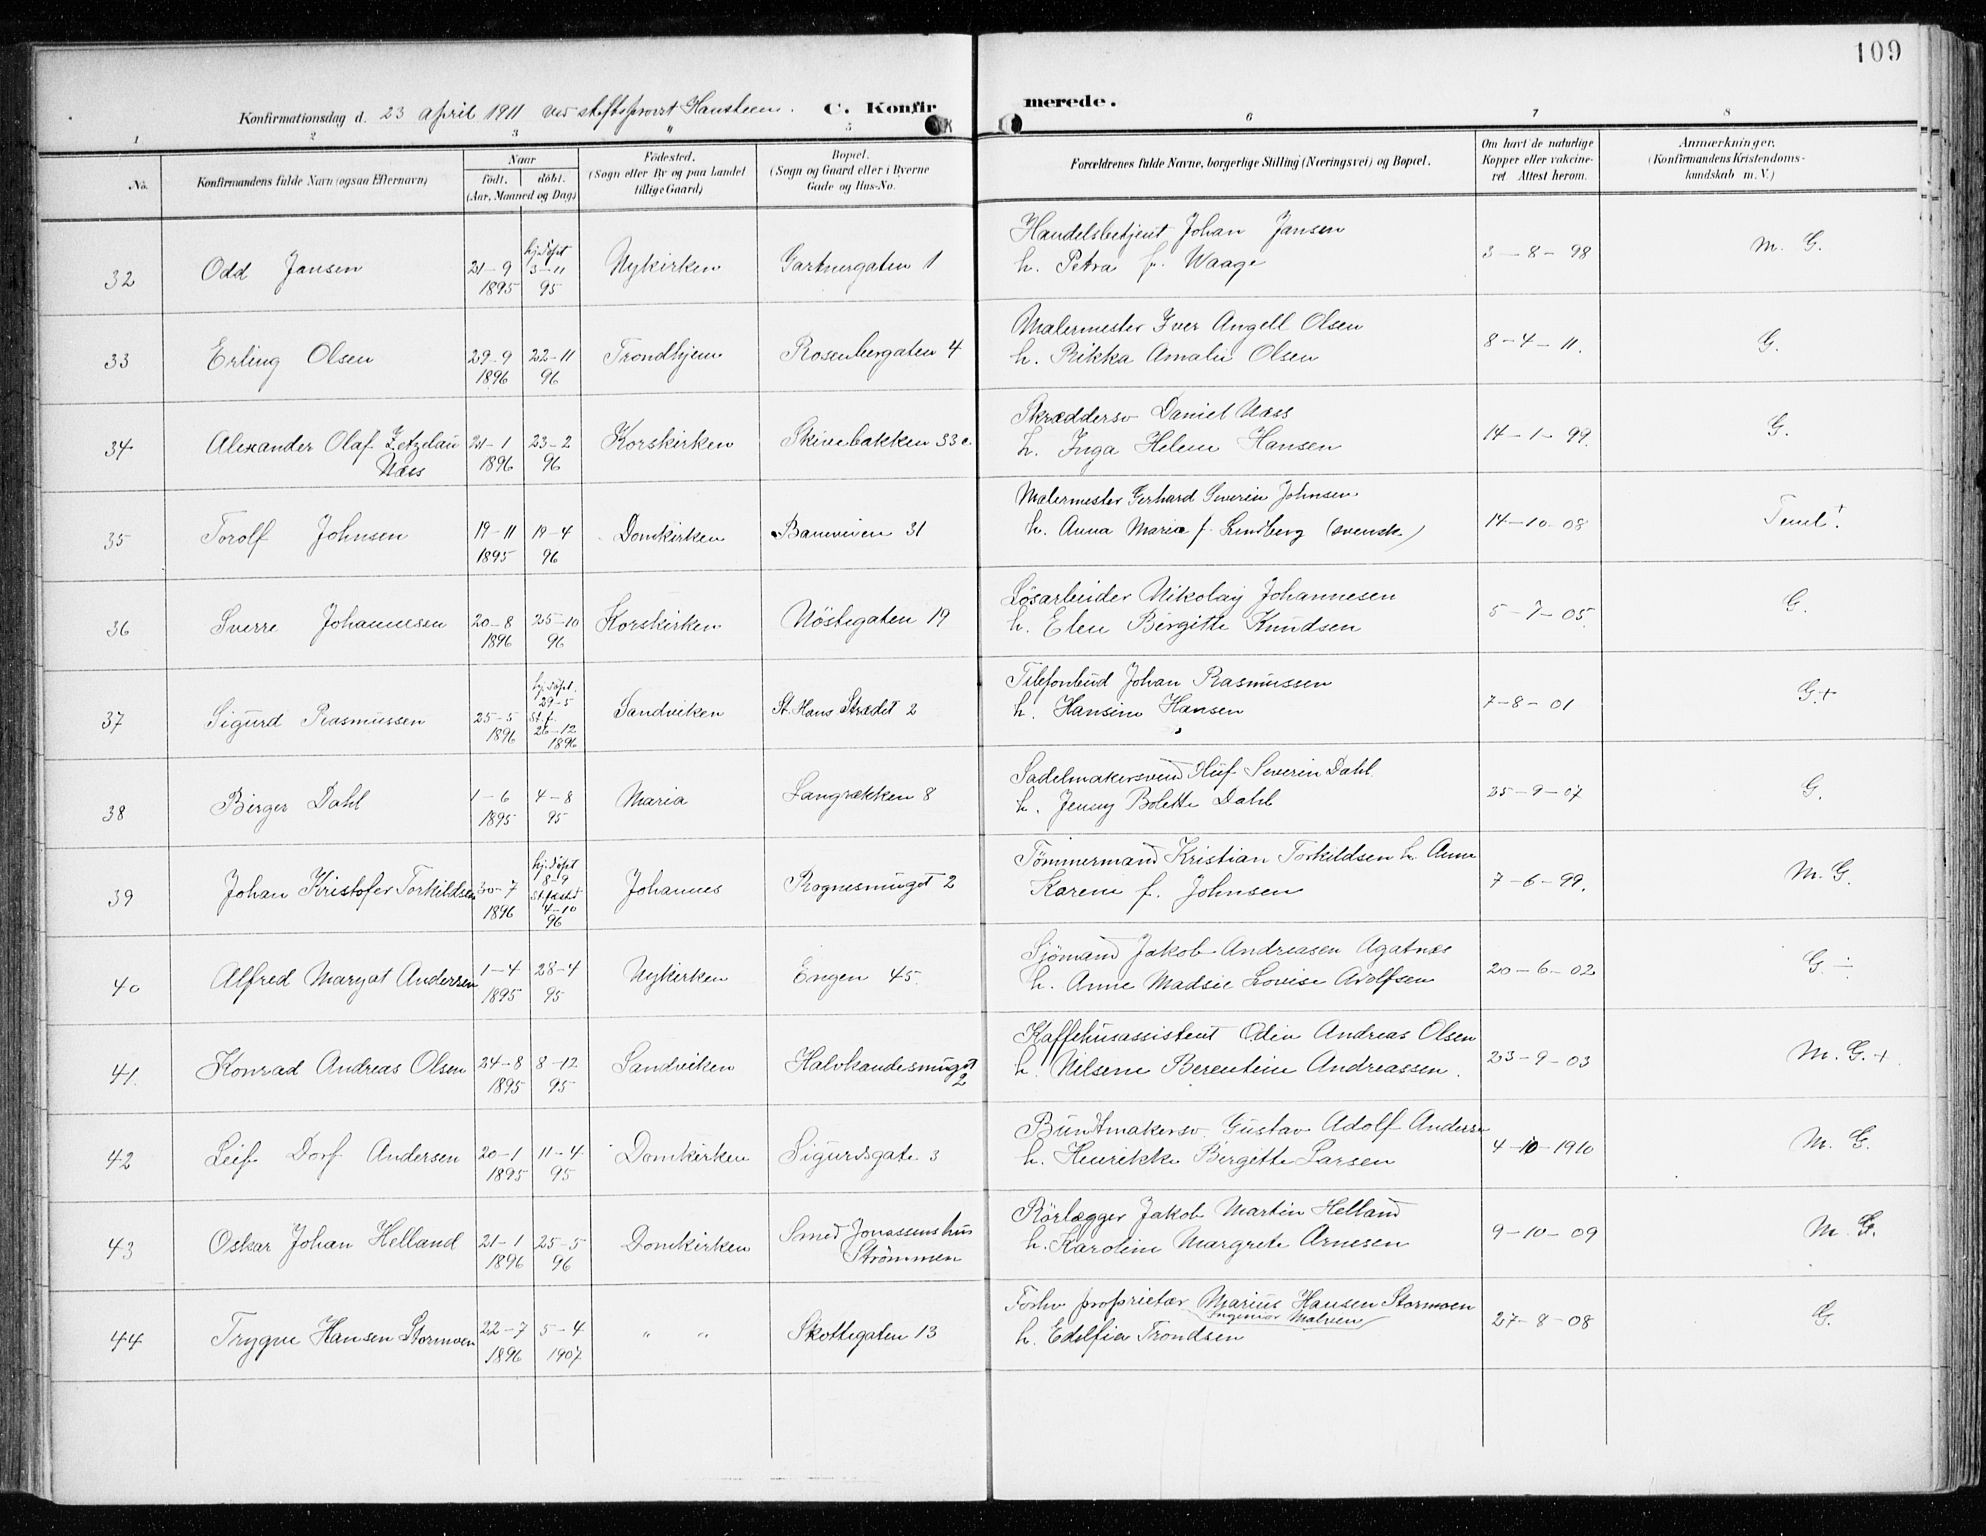 109
Konfirmationsdag d. 23 April 1911 ved stiftsprovst Hansteen. C. Konfirmerede.
1 2 3 4 5 6 7 8
No. Konfirmandens fulde Navn (ogsaa Efternavn) Naar født. døbt. (Aar, Maaned og Dag) Fødested. (Sogn eller By og paa Landet tillige Gaard) Bopæl. (Sogn og Gaard eller i Byerne Gade og Hus-No. Forældrenes fulde Navne, borgerlige Stilling (Næringsvei) og Bopæl. Om havt de naturlige Kopper eller vakcineret Attest herom. Anmærkninger. (Konfirmandens Kristendomskundskab m. V.)
32 Odd Jansen 21-9 1895 hj. døpt 3-11 95 Nykirken Gartnergaten 1 Handelsbetjent Johan Jansen h. Petra f. Waage 3-8-98 M. G.
33 Erling Olsen 29-9 1896 22-11 96 Trondhjem Rosenbergaten 4 Malermester Iver Angell Olsen h. Rikka Amalie Olsen 8-4-11. G.
34 Alexander Olaf Zetzelau Næss 21-1 1896 23-2 96 Korskirken Skivebakken 33 c. Skræddersv Daniel Næss h. Inga Helene Hansen 14-1-99. G.
35 Torolf Johnsen 19-11 1895 19-4 96 Domkirken Baneveien 31 Malermester Gerhard Severin Johnsen h. Anna Maria f. Lindberg (svensk) 14-10-08
36 Sverre Johannesen 20-8 1896 25-10 96 Korskirken Nöstegaten 19 Løsarbeider Nikolay Johannesen h. Elen Birgitte Knudsen 5-7-05. G.
37 Sigurd Rasmussen 25-5 1896 hj. døpt. 29-5 St. f. 26-12 1896 Sandviken St. Hans Strædet 2 Telefonbud Johan Rasmussen h. Hansine Hansen 7-8-01 G+
38 Birger Dahl 1-6 1895 4-8 95 Maria Langrækken 8 Sadelmakersvend Severin Dahl. h. Jenny Bolette Dahl 25-9-07 G.
39 Johan Kristofer Torkildsen 30-7 1896 hj. døpt 8-9 St. fæstet 4-10 96 Johannes Rognesmuget 2 Tømmermand Kristian Torkildsen h. Anne Karene f. Johnsen 7-6-99. M. G.
40 Alfred Maryat Andersen 1-4 1895 28-4 95 Nykirken Engen 45. Sjømand Jakob Andreasen Agatnæs h. Anne Madsie Lovise Adolfsen 20-6-02 G ÷
41. Konrad Andreas Olsen 24-8 1895 8-12 95 Sandviken Halvkandesmuget 2 Kaffehusassistent Odin Andreas Olsen h. Nilsine Berentine Andreassen. 23-9-03 M. G. +
42 Leif Dorf Andersen 20-1 1895 11-4 95 Domkirken Sigurdsgate 3 Buntmakersv Gustav Adolf Anders h. Henrikke Birgitte Larsen 4-10-1910 M. G.
43 Oskar Johan Helland 21-1 1896 25-5 96 Domkirken Smed Jonassens hus Strømmen Rørlægger Jakob Martin Helland h. Karoline Margrete Arnesen 9-10-09 M. G.
44 Trygve Hansen Stormoen 22-7 1896 5-4 1907 " " Skottegaten 13 Forhv. proprietær Marius Hansen Stormoen Ingeniør Malven h. Edelfia Trondsen 27-8-08 G.